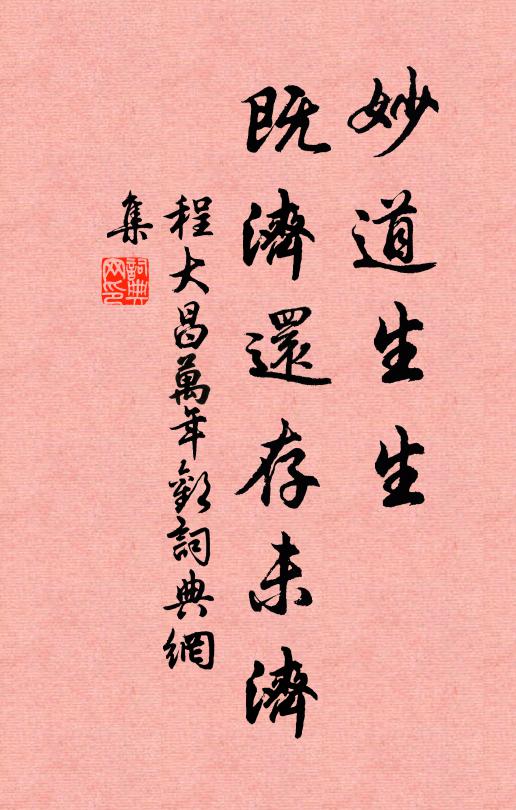 妙道生生
既濟還存未濟
程大昌萬年歡詞典網
集
詞典網印